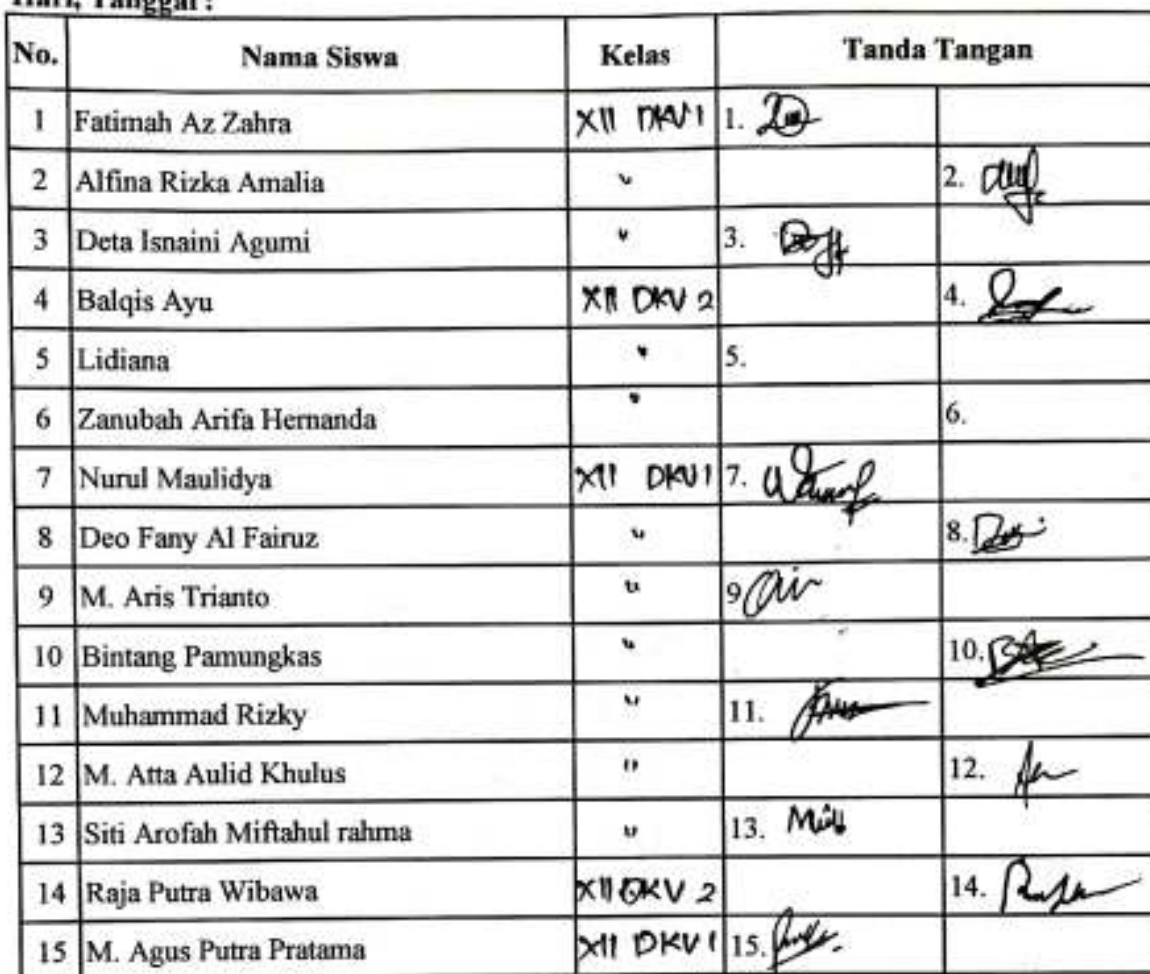 Hari, Tanggal :
No. Nama Siswa Kelas Tanda Tangan
1 Fatimah Az Zahra XII DKV 1 1.
2 Alfina Rizka Amalia " 2.
3 Deta Isnaini Agumi " 3.
4 Balqis Ayu XII DKV 2 4.
5 Lidiana " 5.
6 Zanubah Arifa Hernanda " 6.
7 Nurul Maulidya XII DKV 1 7.
8 Deo Fany Al Fairuz " 8.
9 M. Aris Trianto " 9
10 Bintang Pamungkas " 10.
11 Muhammad Rizky " 11.
12 M. Atta Aulid Khulus " 12.
13 Siti Arofah Miftahul rahma " 13.
14 Raja Putra Wibawa XII DKV 2 14.
15 M. Agus Putra Pratama XII DKV 1 15.